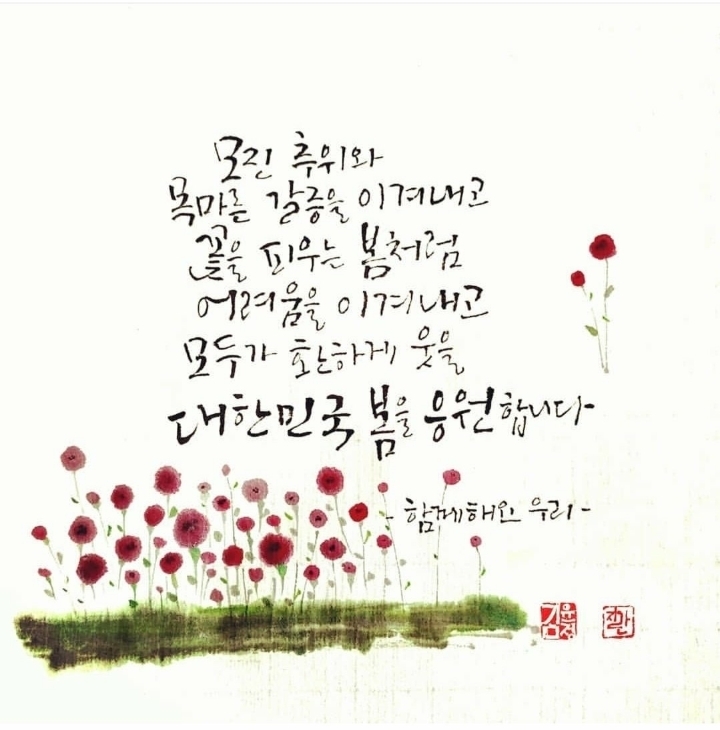 모진 추위와
목마른 갈증을 이겨내고
꽃을 피우는 봄처럼
어려움을 이겨내고
모두가 환하게 웃을
대한민국 봄을 응원합니다-
- 함께해온 우리 -